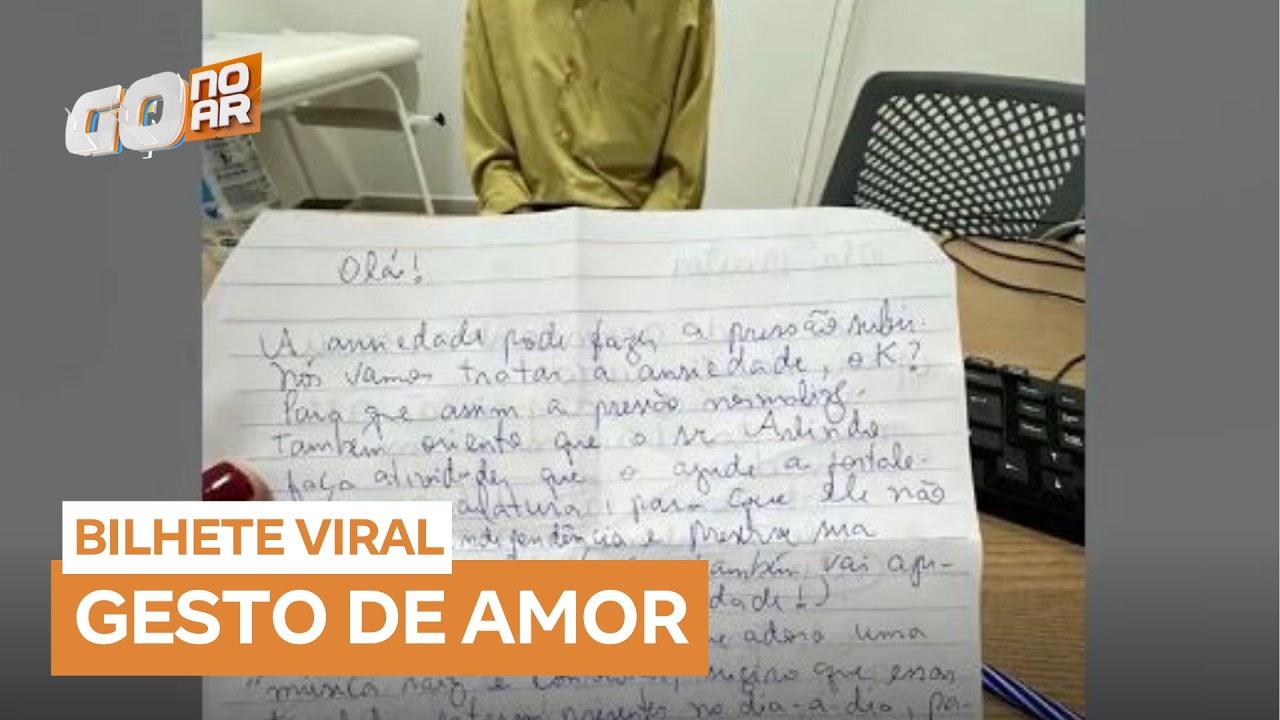 GO NO AR
Olá!
A ansiedade pode fazer a pressão subir.
Nós vamos tratar a ansiedade, oK?
Para que assim a pressão normalize.
Também oriento que o sr Arlindo
faça atividades que o ajude a fortale-
para que ele não
independência e preserve sua
também vai aju-
dade!)
adora uma
"música raiz e que essas
presentes no dia-a-dia, pa-
BILHETE VIRAL
GESTO DE AMOR